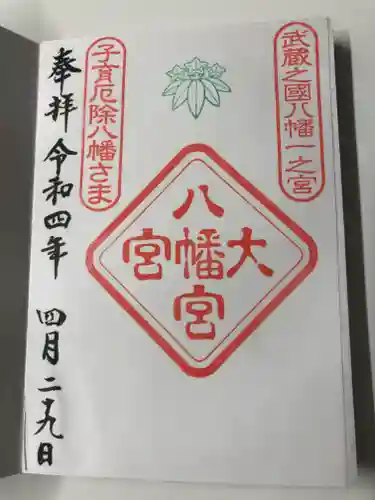 武蔵之國八幡一之宮
大宮八幡宮
子育厄除八幡さま
奉拝 令和四年 四月二十九日